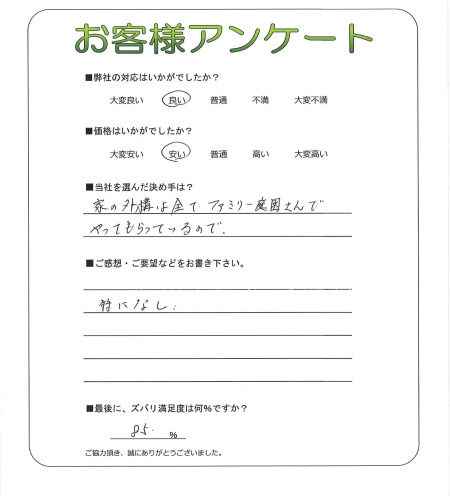 お客様アンケート
■弊社の対応はいかがでしたか?
大変良い 良い 普通 不満 大変不満
■価格はいかがでしたか?
大変安い 安い 普通 高い 大変高い
■当社を選んだ決め手は?
家の外構は全て、ファミリー庭園さんで
やってもらっているので。
■ご感想・ご要望などをお書き下さい。
特になし。
■最後に、ズバリ満足度は何%ですか?
85. %
ご協力頂き、誠にありがとうございました。